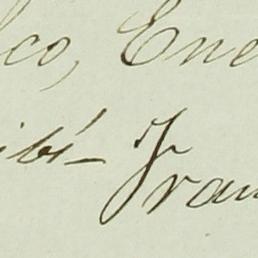 co, Ene
ibí- Fran